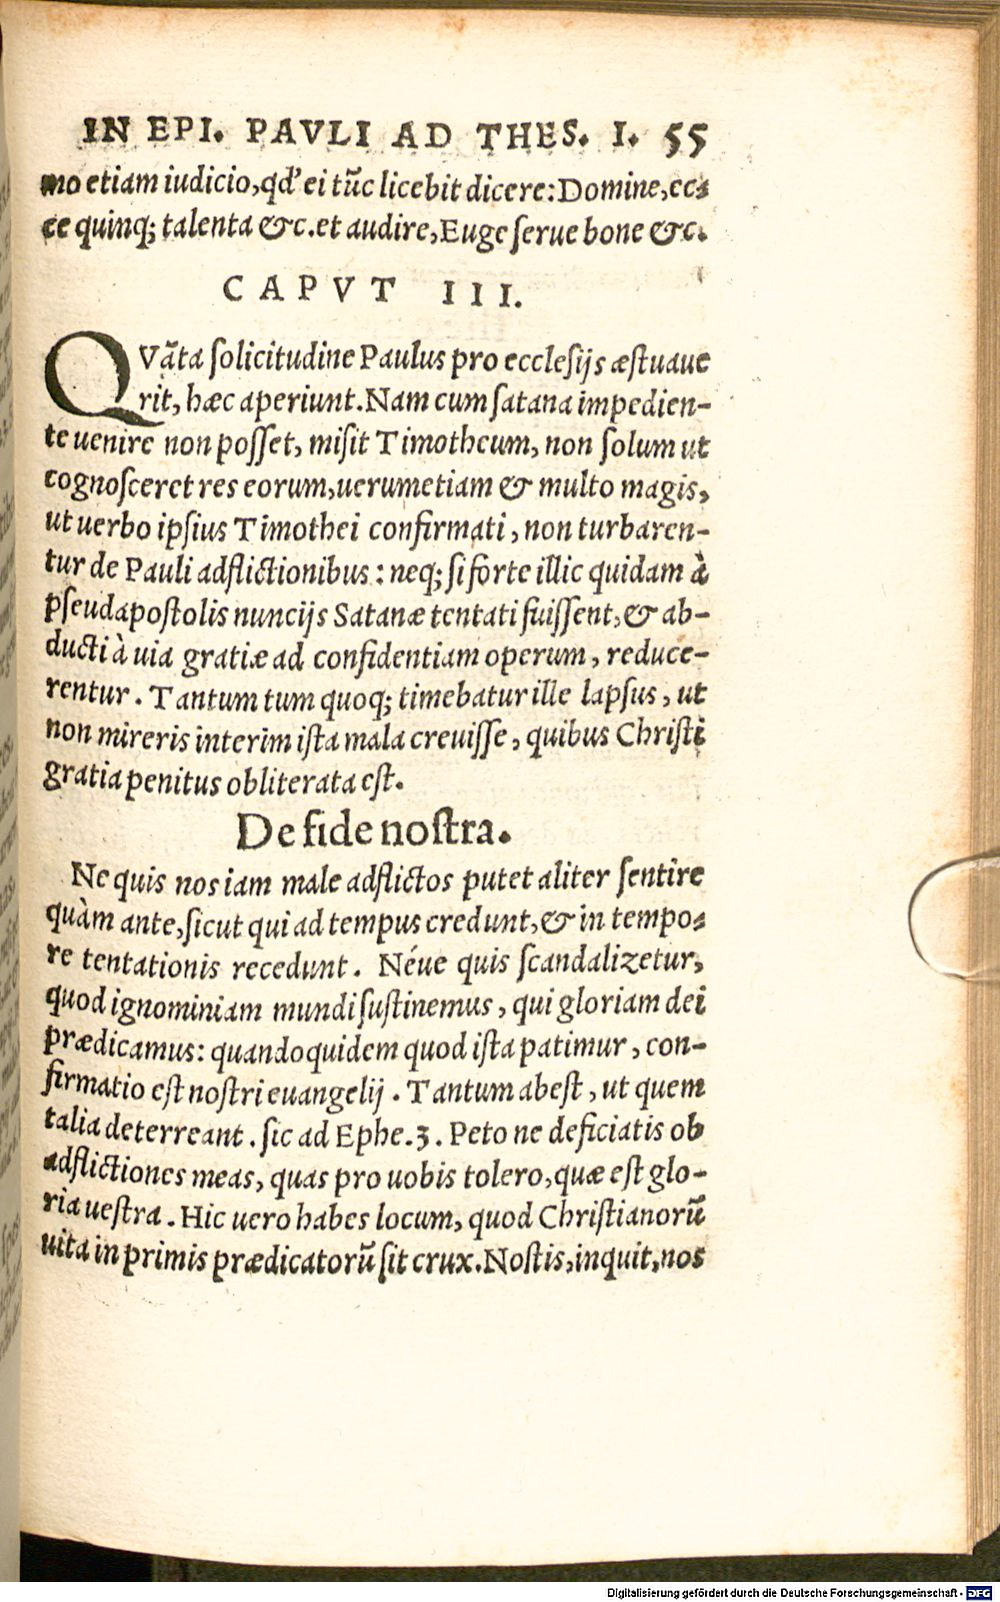 IN EPI. PAVLI AD THES. I. 55
mo etiam iudicio, qd' ei tūc licebit dicere: Domine, ec⸗
ce quinq; talenta &c. et audire, Euge ſerue bone &c.
CAPVT III.
QVāta ſolicitudine Paulus pro eccleſijs æſtuaue
rit, hæc aperiunt. Nam cum ſatana impedien-
te uenire non poſſet, miſit Timotheum, non ſolum ut
cognoſceret res eorum, uerumetiam & multo magis,
ut uerbo ipſius Timothei confirmati, non turbaren-
tur de Pauli adflictionibus: neq; ſi forte illic quidam à
pſeudapoſtolis nuncijs Satanæ tentati fuiſſent, & ab-
ducti à uia gratiæ ad confidentiam operum, reduce-
rentur. Tantum tum quoq; timebatur ille lapſus, ut
non mireris interim iſta mala creuiſſe, quibus Chriſti
gratia penitus obliterata eſt.
De fide noſtra.
Ne quis nos iam male adflictos putet aliter ſentire
quàm ante, ſicut qui ad tempus credunt, & in tempo⸗
re tentationis recedunt. Néue quis ſcandalizetur,
quod ignominiam mundi ſuſtinemus, qui gloriam dei
prædicamus: quandoquidem quod iſta patimur, con-
firmatio eſt noſtri euangelij. Tantum abeſt, ut quem
talia deterreant. ſic ad Ephe. 3. Peto ne deficiatis ob
adflictiones meas, quas pro uobis tolero, quæ eſt glo-
ria ueſtra. Hic uero habes locum, quod Chriſtianorū
uita in primis prædicatorū ſit crux. Noſtis, inquit, nos
Digitalisierung gefördert durch die Deutsche Forschungsgemeinschaft - DFG